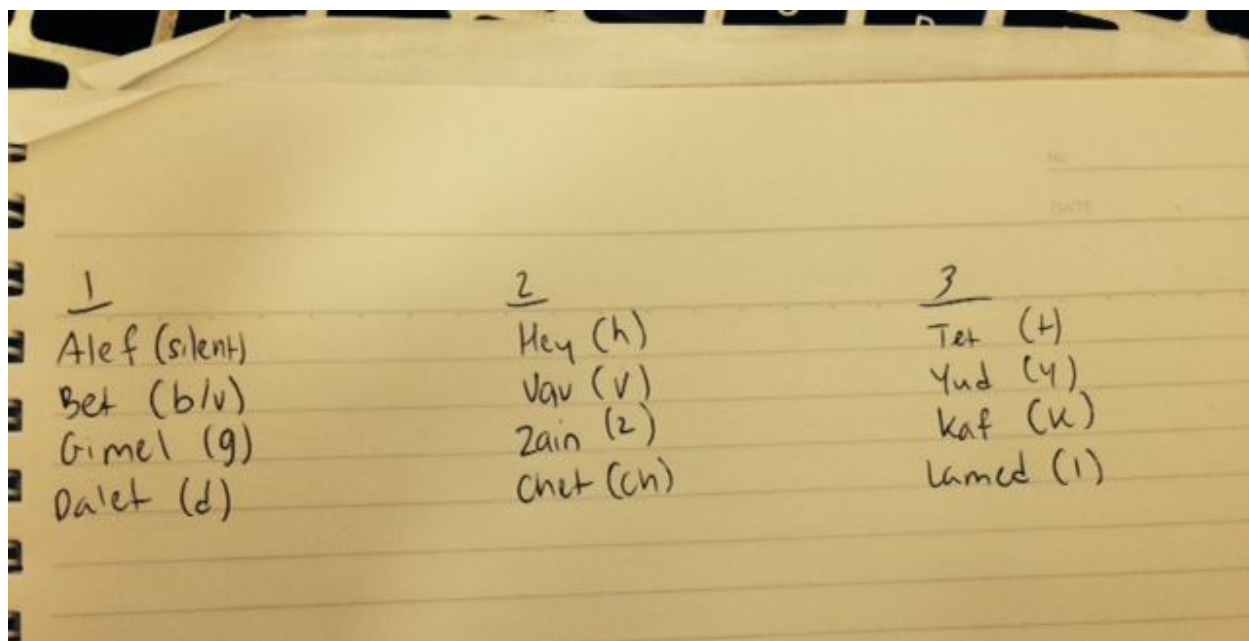 NO
DATE
1
Alef (silent)
Bet (b/v)
Gimel (g)
Dalet (d)
2
Hey (h)
Vav (v)
Zain (z)
Chet (ch)
3
Tet (t)
Yud (y)
Kaf (k)
Lamed (l)